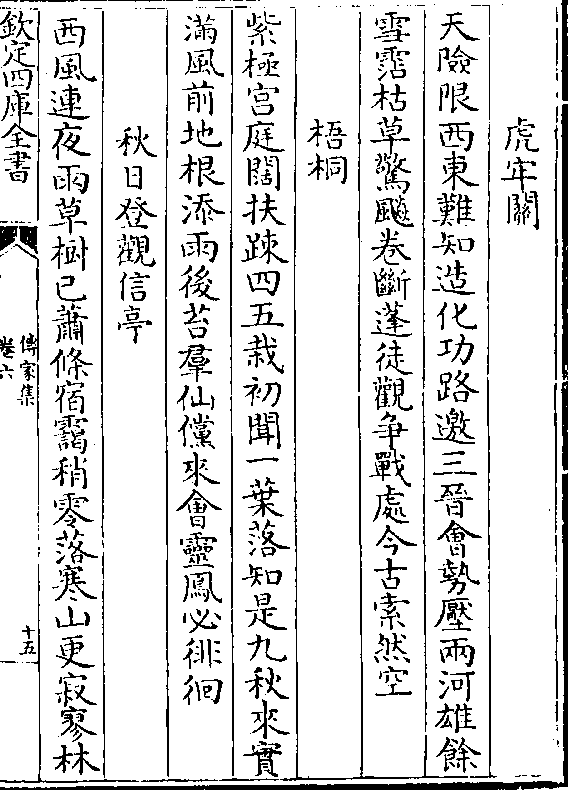 虎牢關
天險限西東難知造化功路邀三晉會勢壓兩河雄餘
雪霑枯草驚飈卷斷蓬徒觀爭戰處今古索然空
梧桐
紫極宮庭闊扶疎四五栽初聞一葉落知是九秋來實
滿風前地根添雨後苔羣仙儻來會靈鳳必徘徊
秋日登觀信亭
西風連夜雨草樹已蕭條宿靄稍零落寒山更寂寥林
欽定四庫全書
傳家集
卷六
十五